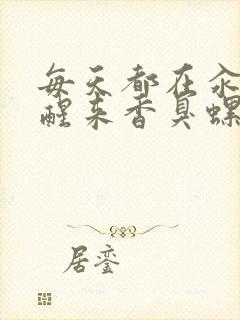 每天都在汆
醒来香臭螺
居銮